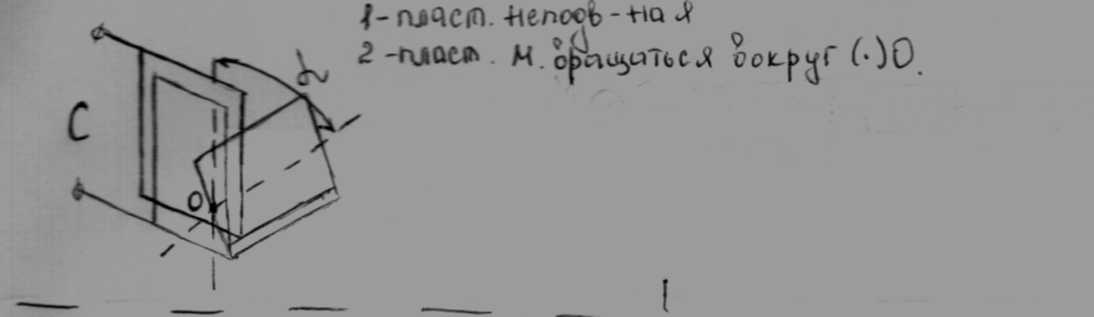 1-пласт. неподв-ная
2-пласт. м. вращаться вокруг (·)О.
α
C
О